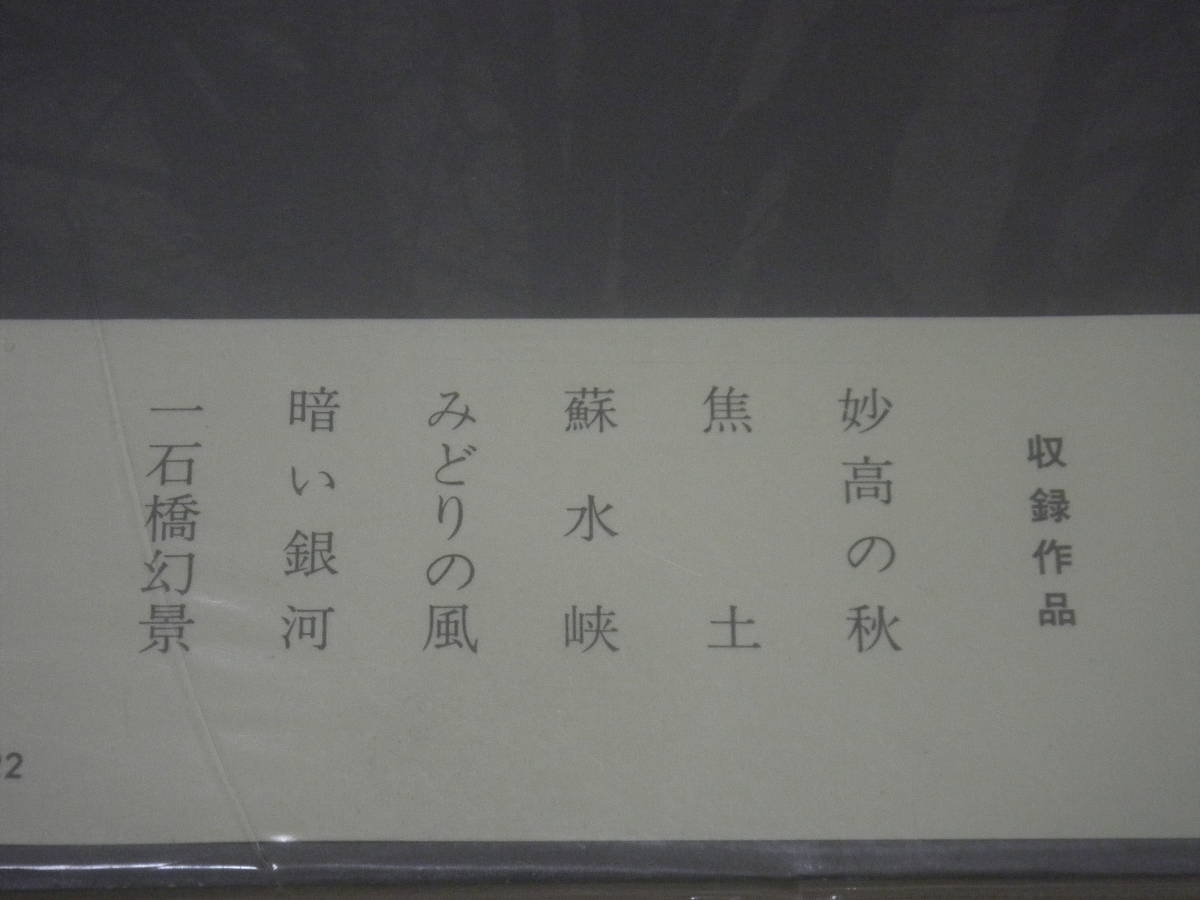 収録作品
妙高の秋
焦土
蘇水峡
みどりの風
暗い銀河
一石橋幻景
22